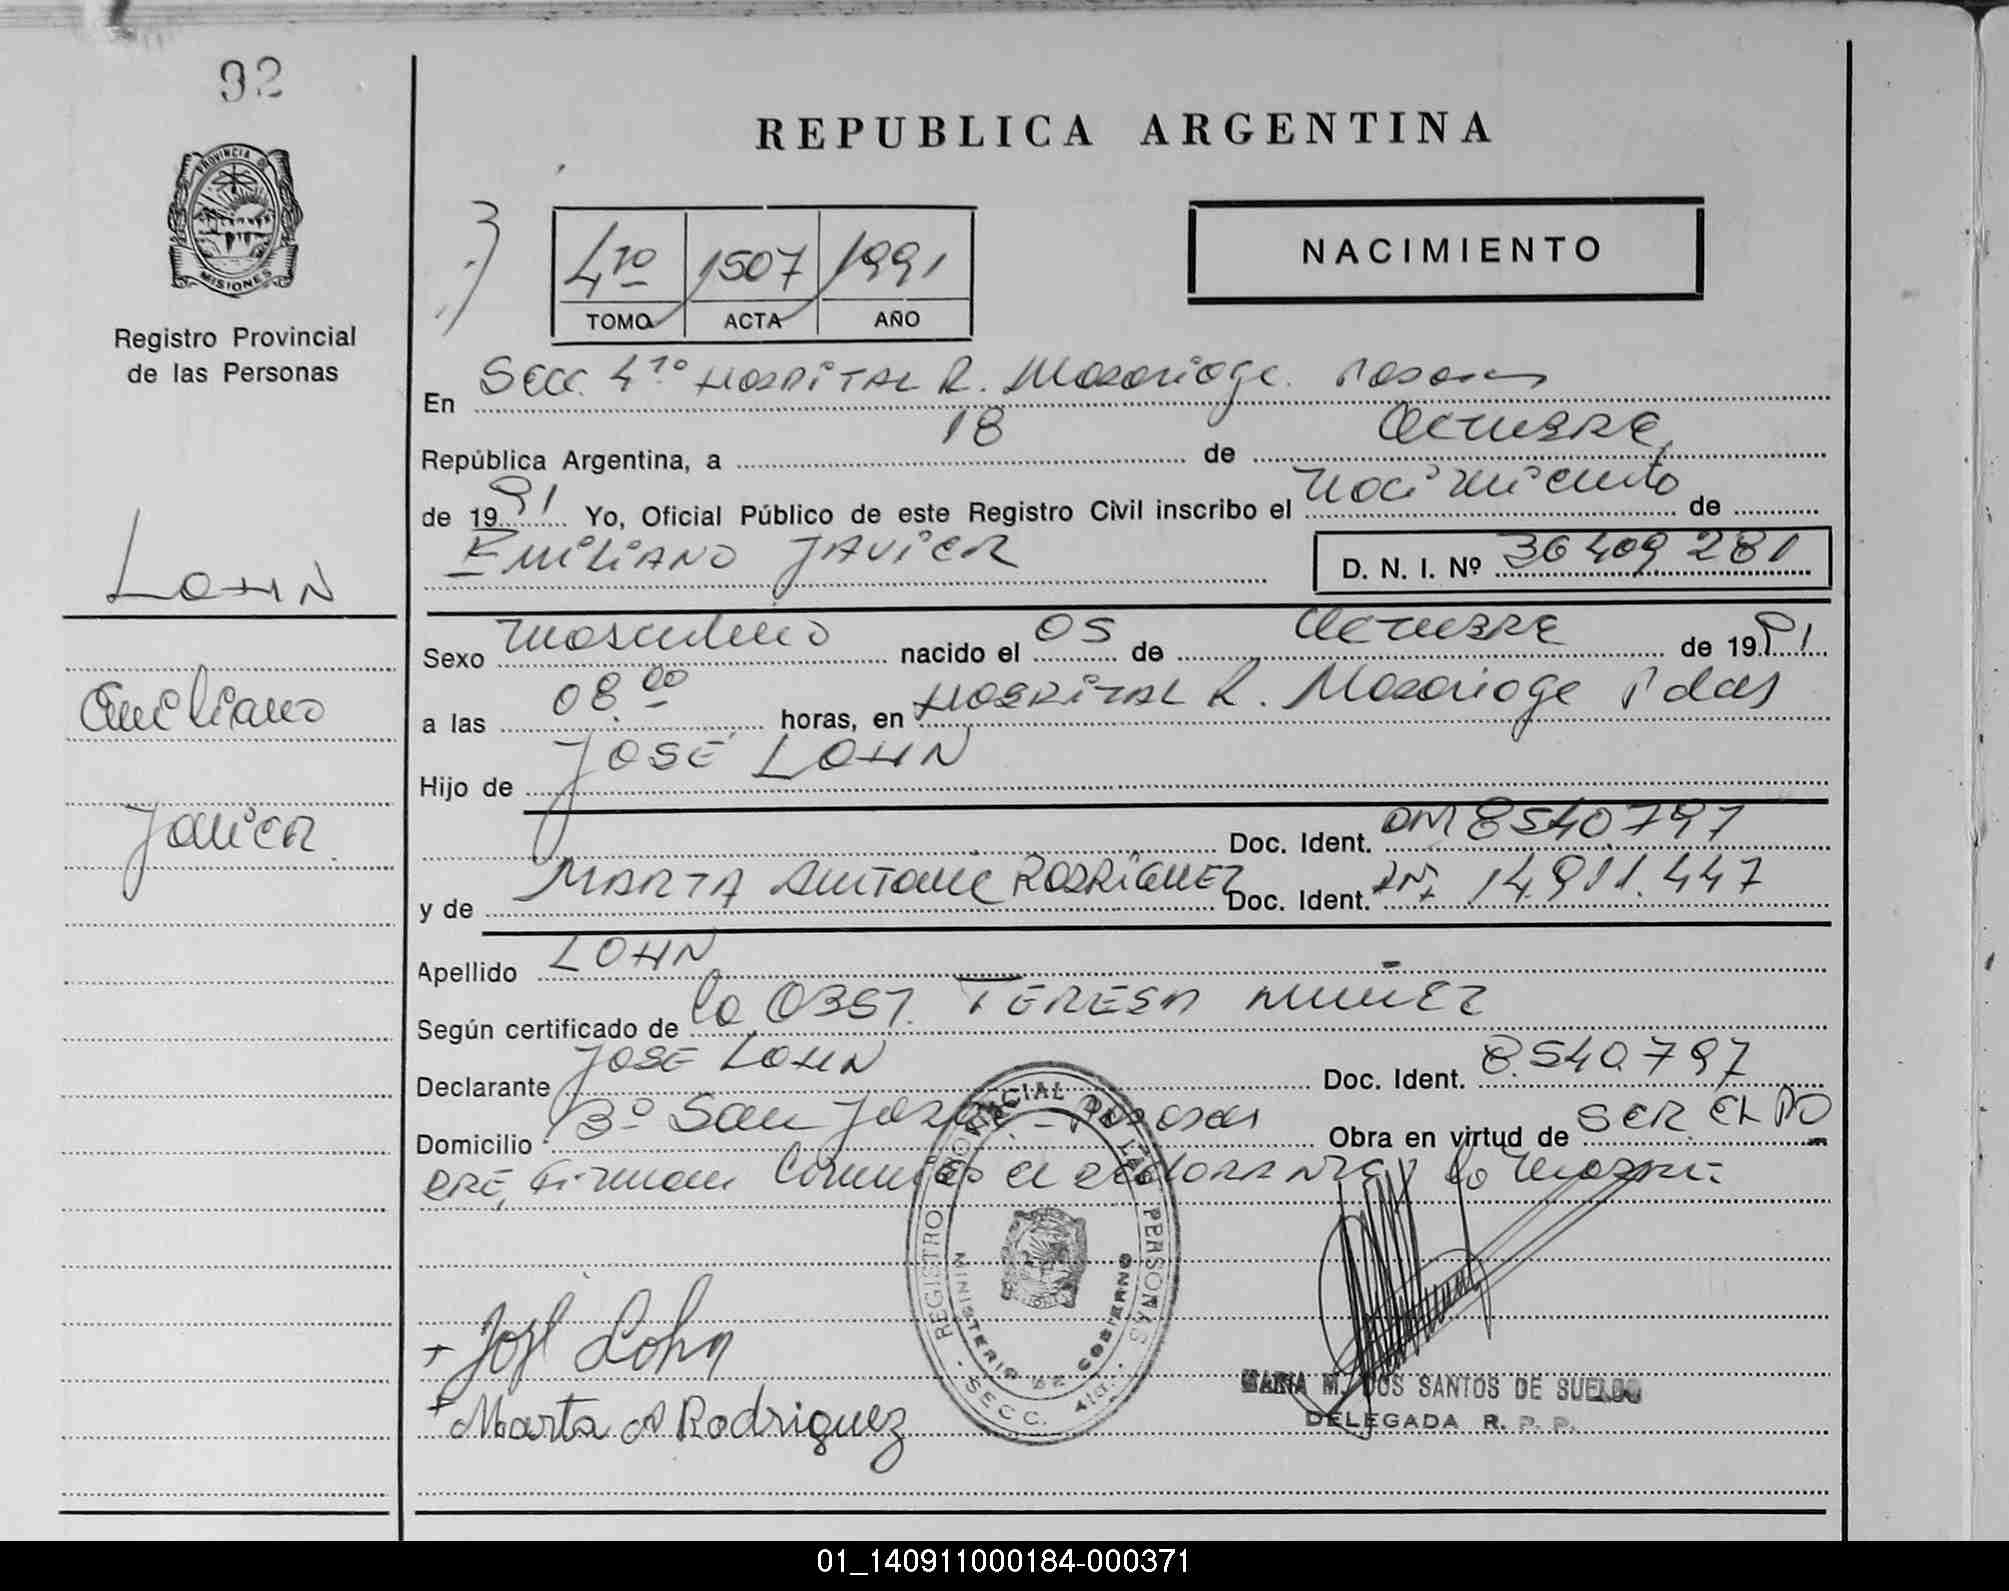 92
REPUBLICA ARGENTINA
PROVINCIA DE
MISIONES
Registro Provincial
de las Personas
4to 1507 1991
TOMO ACTA AÑO
NACIMIENTO
En Secc. 4to HOSPITAL R. Madariaga. Posadas
República Argentina, a 18 de Octubre,
de 1991 Yo, Oficial Público de este Registro Civil inscribo el Nacimiento de
EMILIANO JAVIER
D. N. I. Nº 36409281
LOHN
Emiliano
Javier
Sexo masculino nacido el 05 de Octubre de 1991
a las 08.00 horas, en HOSPITAL R. Madariaga Pdas
Hijo de JOSÉ LOHN
Doc. Ident. DNI 8540.797
y de MARTA Antonia RODRIGUEZ Doc. Ident. DNI 14.911.447
Apellido LOHN
Según certificado de la OBST. TERESA NUÑEZ
Declarante JOSE LOHN Doc. Ident. 8.540.797
Domicilio Bº San Jorge - Posadas Obra en virtud de SER EL PA
DRE, firman el la madre
REGISTRO PROVINCIAL DE LAS PERSONAS
MINISTERIO DE GOBIERNO
SECC. 4ta.
José Lohn
Marta A Rodriguez
MARIA M. DOS SANTOS DE SUELDO
DELEGADA R. P. P.
01_140911000184-000371